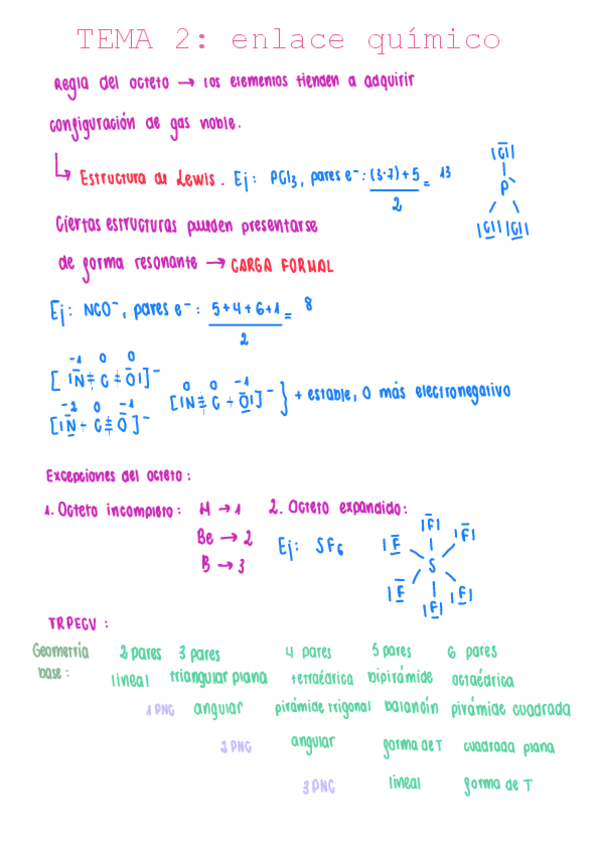 TEMA 2: enlace químico
Regla del octeto → los elementos tienden a adquirir
configuración de gas noble.
↳ Estructura de Lewis. Ej: PCl₃, pares e⁻: (3·7)+5 = 13
2
|Cl|
P
|Cl| |Cl|
Ciertas estructuras pueden presentarse
de forma resonante → CARGA FORMAL
Ej: NCO⁻, pares e⁻: 5+4+6+1 = 8
2
-1 0 0
[ |N = C = O| ]⁻
0 0 -1
[|N ≡ C - O|]⁻ } + estable, O más electronegativo
-2 0 -1
[|N - C ≡ O ]⁻
Excepciones del octeto:
1. Octeto incompleto: H → 1
Be → 2
B → 3
2. Octeto expandido:
Ej: SF₆
|F|
|F |F|
S
|F |F|
|F|
TRPECV:
Geometría 2 pares 3 pares 4 pares 5 pares 6 pares
base: lineal triangular plana tetraédrica bipirámide octaédrica
1 PNC angular pirámide trigonal balancín pirámide cuadrada
2 PNC angular forma de T cuadrada plana
3 PNC lineal forma de T